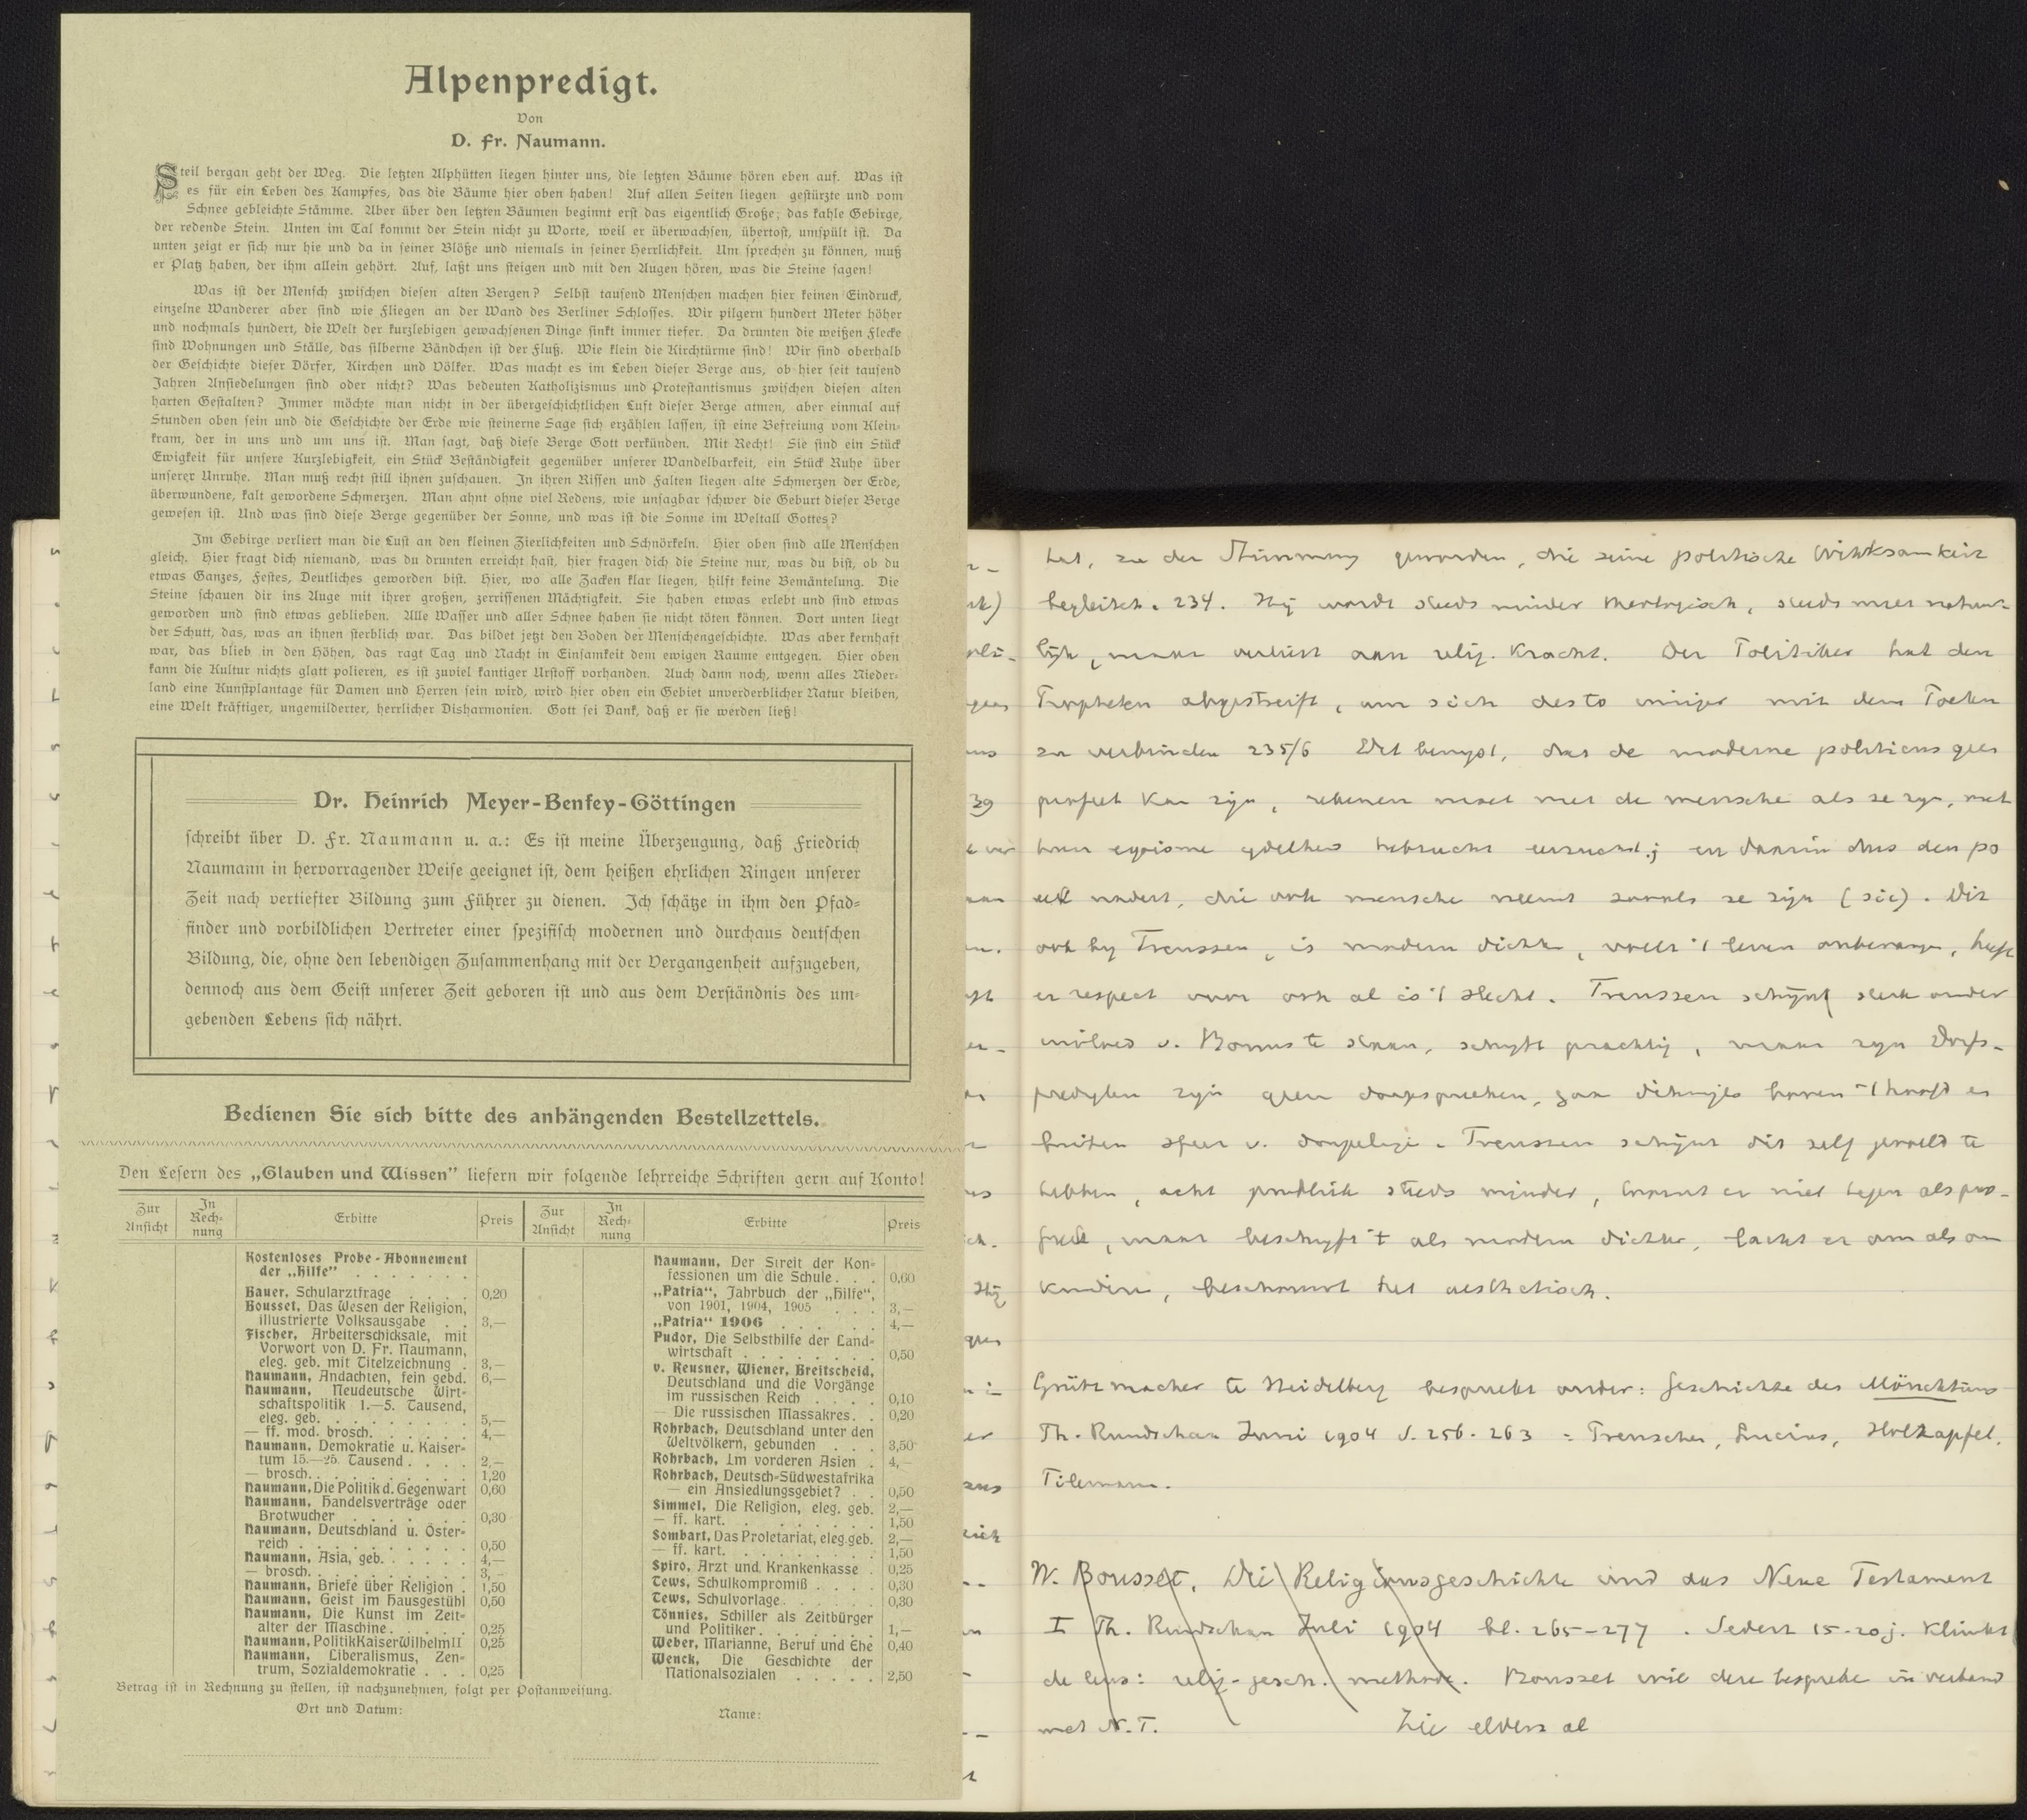 Alpenpredigt.
Von
D. Fr. Naumann.
Steil bergan geht der Weg. Die letzten Alphütten liegen hinter uns, die letzten Bäume hören eben auf. Was ist
es für ein Leben des Kampfes, das die Bäume hier oben haben! Auf allen Seiten liegen gestürzte und vom
Schnee gebleichte Stämme. Aber über den letzten Bäumen beginnt erst das eigentlich Große; das kahle Gebirge,
der redende Stein. Unten im Tal kommt der Stein nicht zu Worte, weil er überwachsen, übertost, umspült ist. Da
unten zeigt er sich nur hie und da in seiner Blöße und niemals in seiner Herrlichkeit. Um sprechen zu können, muß
er Platz haben, der ihm allein gehört. Auf, laßt uns steigen und mit den Augen hören, was die Steine sagen!
Was ist der Mensch zwischen diesen alten Bergen? Selbst tausend Menschen machen hier keinen Eindruck,
einzelne Wanderer aber sind wie Fliegen an der Wand des Berliner Schlosses. Wir pilgern hundert Meter höher
und nochmals hundert, die Welt der kurzlebigen gewachsenen Dinge sinkt immer tiefer. Da drunten die weißen Flecke
sind Wohnungen und Ställe, das silberne Bändchen ist der Fluß. Wie klein die Kirchtürme sind! Wir sind oberhalb
der Geschichte dieser Dörfer, Kirchen und Völker. Was macht es im Leben dieser Berge aus, ob hier seit tausend
Jahren Ansiedelungen sind oder nicht? Was bedeuten Katholizismus und Protestantismus zwischen diesen alten
harten Gestalten? Immer möchte man nicht in der übergeschichtlichen Luft dieser Berge atmen, aber einmal auf
Stunden oben sein und die Geschichte der Erde wie steinerne Sage sich erzählen lassen, ist eine Befreiung vom Klein-
kram, der in uns und um uns ist. Man sagt, daß diese Berge Gott verkünden. Mit Recht! Sie sind ein Stück
Ewigkeit für unsere Kurzlebigkeit, ein Stück Beständigkeit gegenüber unserer Wandelbarkeit, ein Stück Ruhe über
unserer Unruhe. Man muß recht still ihnen zuschauen. In ihren Rissen und Falten liegen alte Schmerzen der Erde,
überwundene, kalt gewordene Schmerzen. Man ahnt ohne viel Redens, wie unsagbar schwer die Geburt dieser Berge
gewesen ist. Und was sind diese Berge gegenüber der Sonne, und was ist die Sonne im Weltall Gottes?
Im Gebirge verliert man die Lust an den kleinen Zierlichkeiten und Schnörkeln. Hier oben sind alle Menschen
gleich. Hier fragt dich niemand, was du drunten erreicht hast, hier fragen dich die Steine nur, was du bist, ob du
etwas Ganzes, Festes, Deutliches geworden bist. Hier, wo alle Zacken klar liegen, hilft keine Bemäntelung. Die
Steine schauen dir ins Auge mit ihrer großen, zerrissenen Mächtigkeit. Sie haben etwas erlebt und sind etwas
geworden und sind etwas geblieben. Alle Wasser und aller Schnee haben sie nicht töten können. Dort unten liegt
der Schutt, das, was an ihnen sterblich war. Das bildet jetzt den Boden der Menschengeschichte. Was aber kernhaft
war, das blieb in den Höhen, das ragt Tag und Nacht in Einsamkeit dem ewigen Raume entgegen. Hier oben
kann die Kultur nichts glatt polieren, es ist zuviel kantiger Urstoff vorhanden. Auch dann noch, wenn alles Nieder-
land eine Kunstplantage für Damen und Herren sein wird, wird hier oben ein Gebiet unverderblicher Natur bleiben,
eine Welt kräftiger, ungemilderter, herrlicher Disharmonien. Gott sei Dank, daß er sie werden ließ!
Dr. Heinrich Meyer-Benfey-Göttingen
schreibt über D. Fr. Naumann u. a.: Es ist meine Überzeugung, daß Friedrich
Naumann in hervorragender Weise geeignet ist, dem heißen ehrlichen Ringen unserer
Zeit nach vertiefter Bildung zum Führer zu dienen. Ich schätze in ihm den Pfad-
finder und vorbildlichen Vertreter einer spezifisch modernen und durchaus deutschen
Bildung, die, ohne den lebendigen Zusammenhang mit der Vergangenheit aufzugeben,
dennoch aus dem Geist unserer Zeit geboren ist und aus dem Verständnis des um-
gebenden Lebens sich nährt.
Bedienen Sie sich bitte des anhängenden Bestellzettels.
Den Lesern des „Glauben und Wissen" liefern wir folgende lehrreiche Schriften gern auf Konto!
Zur Ansicht | In Rech-nung | Erbitte | Preis | Zur Ansicht | In Rech-nung | Erbitte | Preis
Kostenloses Probe-Abonnement
der „Hilfe" . . . . . . .
Bauer, Schularztfrage . . . . 0,20
Bousset, Das Wesen der Religion,
illustrierte Volksausgabe . . 3,—
Fischer, Arbeiterschicksale, mit
Vorwort von D. Fr. Naumann,
eleg. geb. mit Titelzeichnung . 3,—
Naumann, Andachten, fein gebd. 6,—
Naumann, Neudeutsche Wirt-
schaftspolitik 1.—5. Tausend,
eleg. geb. . . . . . . . . 5,—
— ff. mod. brosch. . . . . . 4,—
Naumann, Demokratie u. Kaiser-
tum 15.—25. Tausend . . . . 2,—
— brosch. . . . . . . . . 1,20
Naumann, Die Politik d. Gegenwart 0,60
Naumann, Handelsverträge oder
Brotwucher . . . . . . . 0,30
Naumann, Deutschland u. Öster-
reich . . . . . . . . . 0,50
Naumann, Asia, geb. . . . . . 4,—
— brosch. . . . . . . . . 3,—
Naumann, Briefe über Religion . 1,50
Naumann, Geist im Hausgestühl 0,50
Naumann, Die Kunst im Zeit-
alter der Maschine . . . . . 0,25
Naumann, Politik Kaiser Wilhelm II 0,25
Naumann, Liberalismus, Zen-
trum, Sozialdemokratie . . . 0,25
Naumann, Der Streit der Kon-
fessionen um die Schule . . . 0,60
„Patria", Jahrbuch der „Hilfe",
von 1901, 1904, 1905 . . . 3,—
„Patria" 1906 . . . . . . 4,—
Pudor, Die Selbsthilfe der Land-
wirtschaft . . . . . . . . 0,50
v. Reusner, Wiener, Breitscheid,
Deutschland und die Vorgänge
im russischen Reich . . . . 0,10
— Die russischen Massakres . . 0,20
Rohrbach, Deutschland unter den
Weltvölkern, gebunden . . . 3,50
Rohrbach, Im vorderen Asien . 4,—
Rohrbach, Deutsch-Südwestafrika
— ein Ansiedlungsgebiet? . . 0,50
Simmel, Die Religion, eleg. geb. 2,—
— ff. kart. . . . . . . . . 1,50
Sombart, Das Proletariat, eleg. geb. 2,—
— ff. kart. . . . . . . . . 1,50
Spiro, Arzt und Krankenkasse . 0,25
Tews, Schulkompromiß . . . . 0,30
Tews, Schulvorlage . . . . . 0,30
Tönnies, Schiller als Zeitbürger
und Politiker . . . . . . . 1,—
Weber, Marianne, Beruf und Ehe 0,40
Wenck, Die Geschichte der
Nationalsozialen . . . . . 2,50
Betrag ist in Rechnung zu stellen, ist nachzunehmen, folgt per Postanweisung.
Ort und Datum: Name:
hat, zu der Stimmung geworden, die seine politische Wirksamkeit
begleitet. 234. Hij wordt steeds minder theologisch, steeds meer natuur-
lijk, maar verliest aan relig. kracht. Der Politiker hat den
Propheten abgestreift, um sich desto inniger mit dem Poeten
zu verbinden 235/6 dat de moderne politicus geen
profeet kan zijn, rekenen moet met de mensche als ze zijn, met
hun egoisme en daarin dus den po
eet nadert, die ook mensche neemt zooals ze zijn (sic). Dit
ook bij Frenssen, is modern dichter, voelt 't leven
er respect voor ook al is 't slecht. Frenssen schijnt sterk onder
invloed v. Bonus te staan, schrijft prachtig, maar zijn Dorfs-
predigten zijn geen dorpspreeken, gaan boven 't hoofd en
buiten sfeer v. Frenssen schijnt dit zelf gevoeld te
hebben, steeds minder, komt er niet tegen als pro-
feet, maar beschrijft 't als modern dichter, lacht er om als om
kinderen, beschouwt het aesthetisch.
Grützmacher te Heidelberg bespreekt onder: Geschichte des Mönchtums
Th. Rundschau Juni 1904 S. 256-263 : Preuschen, Lucius, Holtzapfel,
Tilemann.
W. Bousset, Die Religionsgeschichte und das Neue Testament
I Th. Rundschau Juli 1904 bl. 265-277. Sedert 15-20 j. klinkt
de leus: relig-gesch. methode. Bousset wil deze bespreken in verband
met N.T. Zie elders al